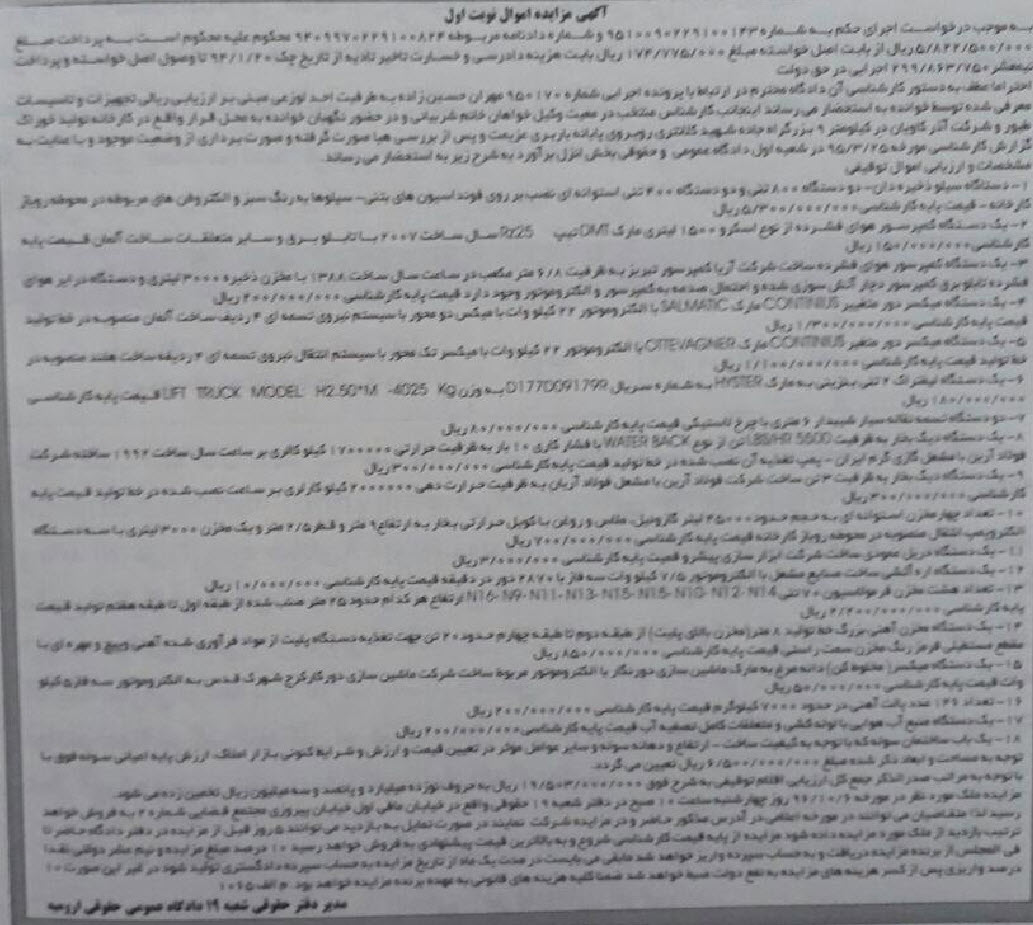 آگهی مزایده اموال نوبت اول
به موجب درخواست اجرای حکم به شماره ۹۵۱۰۰۹۰۲۲۹۱۰۰۱۴۳ و شماره دادنامه مربوطه ۹۴۰۹۹۷۰۲۲۹۱۰۰۸۲۴ محکوم علیه محکوم است به پرداخت مبلغ
۵/۸۲۲/۵۰۰/۰۰۰ ریال از بابت اصل خواسته مبلغ ۱۷۴/۷۷۵/۰۰۰ ریال بابت هزینه دادرسی و خسارت تاخیر تادیه از تاریخ چک ۹۴/۱/۲۰ تا وصول اصل خواسته و پرداخت
نیمعشر ۲۹۹/۸۶۳/۷۵۰ اجرایی در حق دولت
احتراما عطف به دستور کارشناسی آن دادگاه محترم در ارتباط با پرونده اجرایی شماره ۹۵۰۱۷۰ مهران حسین زاده به ظرفیت احد توزعی مبنی بر ارزیابی ریالی تجهیزات و تاسیسات
معرفی شده توسط خوانده به استحضار می رساند اینجانب کارشناس منتخب در معیت وکیل خواهان خانم شربیانی و در حضور نگهبان خوانده به محل قرار واقع در کارخانه تولید خوراک
طیور و شرکت آذر کاویان در کیلومتر ۹ بزرگراه جاده شهید کلانتری روبروی پایانه باربری عزیمت و پس از بررسی ها صورت گرفته و صورت برداری از وضعیت موجود و با عنایت به
گزارش کارشناسی مورخه ۹۵/۳/۲۵ در شعبه اول دادگاه عمومی و حقوقی بخش انزل برآورد به شرح زیر به استحضار می رساند.
مشخصات و ارزیابی اموال توقیفی
۱- دستگاه سیلو ذخیره دان- دو دستگاه ۸۰۰ تنی و دو دستگاه ۴۰۰ تنی استوانه ای نصب بر روی فونداسیون های بتنی- سیلوها به رنگ سبز و الکتروفن های مربوطه در محوطه روباز
کارخانه - قیمت پایه کارشناسی ۵/۳۰۰/۰۰۰/۰۰۰ ریال
۲- یک دستگاه کمپرسور هوای فشرده از نوع اسکرو ۱۵۰۰ لیتری مارک DMT تیپ Rr25 سال ساخت ۲۰۰۷ با تابلو برق و سایر متعلقات ساخت آلمان قیمت پایه
کارشناسی ۱۵۰/۰۰۰/۰۰۰ ریال
۳- یک دستگاه کمپرسور هوای فشرده ساخت شرکت آریا کمپرسور تبریز به ظرفیت ۶/۸ متر مکعب در ساعت سال ساخت ۱۳۸۸ با مخزن ذخیره ۳۰۰۰ لیتری و دستگاه درایر هوای
فشرده تابلو برق کمپرسور دچار آتش سوزی شده و احتمال صدمه به کمپرسور و الکتروموتور وجود دارد قیمت پایه کارشناسی ۲۰۰/۰۰۰/۰۰۰ ریال
۴- یک دستگاه میکسر دور متغییر CONTINIUS مارک SALMATIC با الکتروموتور ۲۲ کیلو وات با میکس دو محور با سیستم نیروی تسمه ای ۴ ردیف ساخت آلمان منصوبه در خط تولید
قیمت پایه کارشناسی ۱/۳۰۰/۰۰۰/۰۰۰ ریال
۵- یک دستگاه میکسر دور متغیر CONTINIUS مارک OTTEVAGNER با الکتروموتور ۲۲ کیلو وات با میکسر تک محور با سیستم انتقال نیروی تسمه ای ۴ ردیفه ساخت هلند منصوبه در
خط تولید قیمت پایه کارشناسی ۱/۱۰۰/۰۰۰/۰۰۰ ریال
۶- یک دستگاه لیفتراک ۲ تنی بنزینی به مارک HYSTER به شماره سریال D177D09179R به وزن LIFT TRUCK MODEL H2.50*M -4025 Kg قیمت پایه کارشناسی
۱۸۰/۰۰۰/۰۰۰ ریال
۷- دو دستگاه تسمه نقاله سیار شیبدار ۶ متری با چرخ لاستیکی قیمت پایه کارشناسی ۸۰/۰۰۰/۰۰۰ ریال
۸- یک دستگاه دیگ بخار به ظرفیت LBS/HR 5500 تن از نوع WATER BACK با فشار کاری ۱۰ بار به ظرفیت حرارتی ۱۷۰۰۰۰۰ کیلو کالری بر ساعت سال ساخت ۱۹۹۲ ساخته شرکت
فولاد آرین با مشعل گازی گرم ایران - پمپ تغذیه آن نصب شده در خط تولید قیمت پایه کارشناسی ۳۰۰/۰۰۰/۰۰۰ ریال
۹- یک دستگاه دیگ بخار به ظرفیت ۳ تن ساخت شرکت فولاد آرین با مشعل فولاد آریان به ظرفیت حرارت دهی ۲۰۰۰۰۰۰ کیلو کالری بر ساعت نصب شده در خط تولید قیمت پایه
کارشناسی ۳۰۰/۰۰۰/۰۰۰ ریال
۱۰- تعداد چهار مخزن استوانه ای به حجم حدود ۴۵۰۰۰ لیتر گازوئیل، ملاس و روغن با کویل حرارتی بخار به ارتفاع ۹ متر و قطر ۲/۵ متر و یک مخزن ۳۰۰۰ لیتری با سه دستگاه
الکتروپمپ انتقال منصوبه در محوطه روباز کارخانه قیمت پایه کارشناسی ۷۰۰/۰۰۰/۰۰۰ ریال
۱۱- یک دستگاه دریل عمودی ساخت شرکت ابزار سازی پیشرو قیمت پایه کارشناسی ۳/۰۰۰/۰۰۰ ریال
۱۲- یک دستگاه اره آتشی ساخت صنایع مشعل با الکتروموتور ۷/۵ کیلو وات سه فاز با ۲۸۷۰ دور در دقیقه قیمت پایه کارشناسی ۱۰/۰۰۰/۰۰۰ ریال
۱۳- تعداد هشت مخزن فرمولاسیون ۷۰ تنی N16- N9- N11- N13- N15- N15- N10- N12- N14 ارتفاع هر کدام حدود ۲۵ متر نصب شده از طبقه اول تا طبقه هفتم تولید قیمت
پایه کارشناسی ۲/۲۰۰/۰۰۰/۰۰۰ ریال
۱۴- یک دستگاه مخزن آهنی بزرگ خط تولید ۸ متر (مخزن بالای پلیت) از طبقه دوم تا طبقه چهارم حدود ۲۰ تن جهت تغذیه دستگاه پلیت از مواد فرآوری شده آهنی وپیچ و مهره ای با
مقطع مستطیلی قرمز رنگ مخزن سمت راستی قیمت پایه کارشناسی ۸۵۰/۰۰۰/۰۰۰ ریال
۱۵- یک دستگاه میکسر (مخلوط کن) دانه مرغ به مارک ماشین سازی دورنگار با الکتروموتور مربوط ساخت شرکت ماشین سازی دور کار کرج شهرک قدس به الکتروموتور سه فاز ۵ کیلو
وات قیمت پایه کارشناسی ۵۰/۰۰۰/۰۰۰ ریال
۱۶- تعداد ۱۲۶ عدد پالت آهنی در حدود ۷۰۰۰ کیلوگرم قیمت پایه کارشناسی ۲۰۰/۰۰۰/۰۰۰ ریال
۱۷- یک دستگاه منبع آب هوایی با لوله کشی و متعلقات کامل تصفیه آب قیمت پایه کارشناسی ۲۰۰/۰۰۰/۰۰۰ ریال
۱۸- یک باب ساختمان سوله که با توجه به کیفیت ساخت - ارتفاع و دهانه سوله و سایر عوامل موثر در تعیین قیمت و ارزش و شرایط کنونی بازار املاک، ارزش پایه اعیانی سوله فوق با
توجه به مساحت و ابعاد ذکر شده مبلغ ۶/۵۰۰/۰۰۰/۰۰۰ ریال تعیین می گردد.
با توجه به مراتب صدر الذکر جمع کل ارزیابی اقلام توقیفی به شرح فوق ۱۹/۵۰۳/۰۰۰/۰۰۰ ریال به حروف نوزده میلیارد و پانصد و سه میلیون ریال تخمین زده می شود
مزایده ملک مورد نظر در مورخه ۹۶/۱۰/۶ روز چهارشنبه ساعت ۱۰ صبح در دفتر شعبه ۱۹ حقوقی واقع در خیابان مافی اول خیابان پیروزی مجتمع قضایی شماره ۲ به فروش خواهد
رسید لذا متقاضیان می توانند در مورخه اعلامی در آدرس مذکور حاضر و در مزایده شرکت نمایند در صورت تمایل به بازدید می توانند ۵ روز قبل از مزایده در دفتر دادگاه حاضر تا
ترتیب بازدید از ملک مورد مزایده داده شود مزایده از پایه قیمت کارشناسی شروع و به بالاترین قیمت پیشنهادی به فروش خواهد رسید ۱۰ درصد مبلغ مزایده و نیم عشر دولتی نقدا
فی المجلس از برنده مزایده دریافت و به حساب سپرده واریز خواهد شد مابقی می بایست در مدت یک ماه از تاریخ مزایده به حساب سپرده دادگستری تولید شود در غیر این صورت ۱۰
درصد واریزی پس از کسر هزینه های مزایده به نفع دولت ضبط خواهد شد ضمنا کلیه هزینه های قانونی به عهده برنده مزایده خواهد بود. م الف ۱۰۶۵
مدیر دفتر حقوقی شعبه ۱۹ دادگاه عمومی حقوقی ارومیه